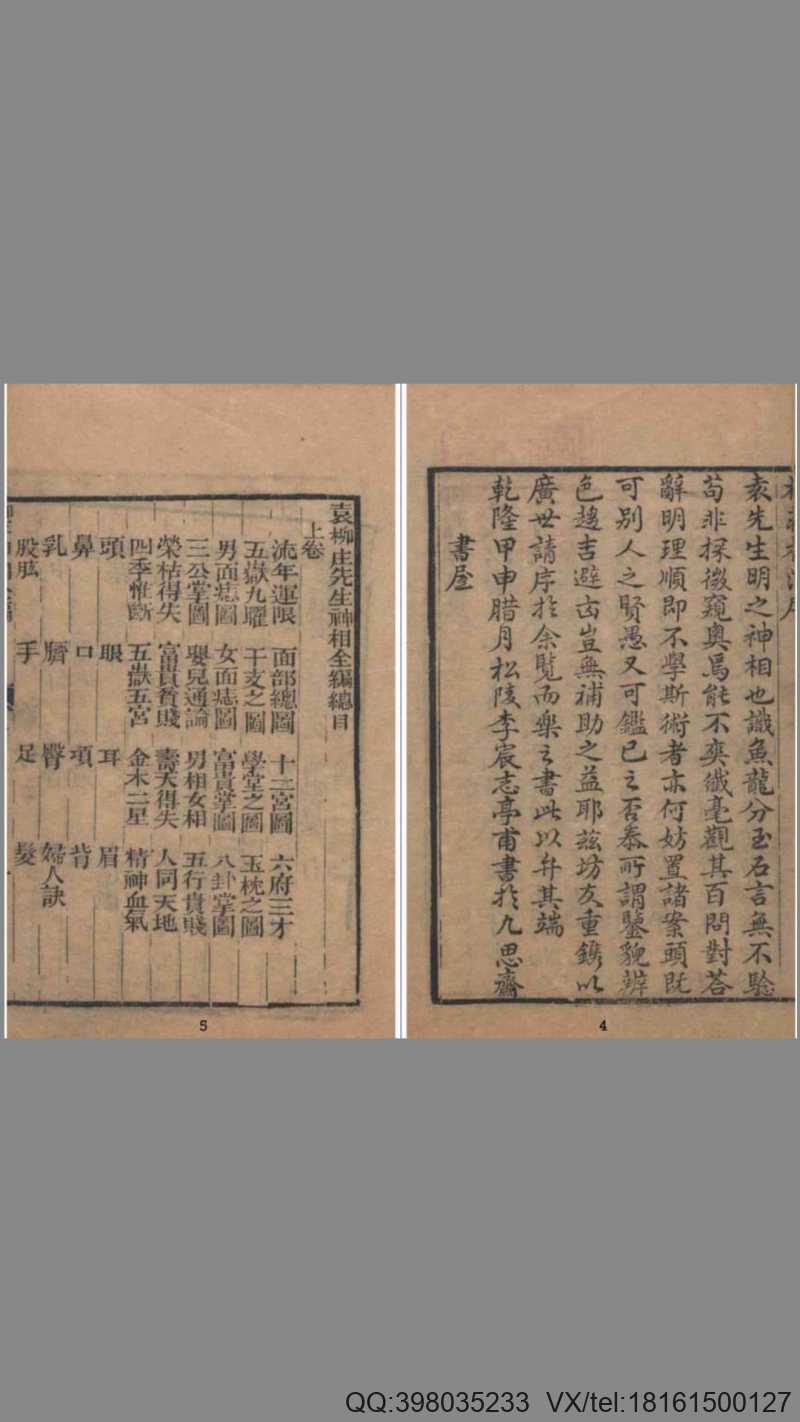 袁先生明之神相也識魚龍分玉石言無不驗
苟非探微窺奧焉能不爽纖毫觀其百問對荅
辭明理順即不學斯術者亦何妨置諸案頭既
可別人之賢愚又可鑑已之否泰所謂鑒貌辨
色趨吉避凶豈無補助之益耶茲坊友重鐫以
廣世請序於余覧而樂之書此以弁其端
乾隆甲申腊月松陵李宸志亭甫書於九思齋
書屋
4
袁柳庄先生神相全編總目
上卷
流年運限 面部總圖 十二宮圖 六府三才
五嶽九曜 干支之圖 學堂之圖 玉枕之圖
男面痣圖 女面痣圖 富貴掌圖 八卦掌圖
三公掌圖 嬰兒通論 男相女相 五行貴賤
榮枯得失 富貴貧賤 壽夭得失 人同天地
四季推斷 五嶽五宮 金木二星 精神血氣
頭 眼 耳 眉
鼻 口 項 背
乳 臍 臀 婦人訣
股肱 手 足 髮
5
QQ:398035233 VX/tel:18161500127